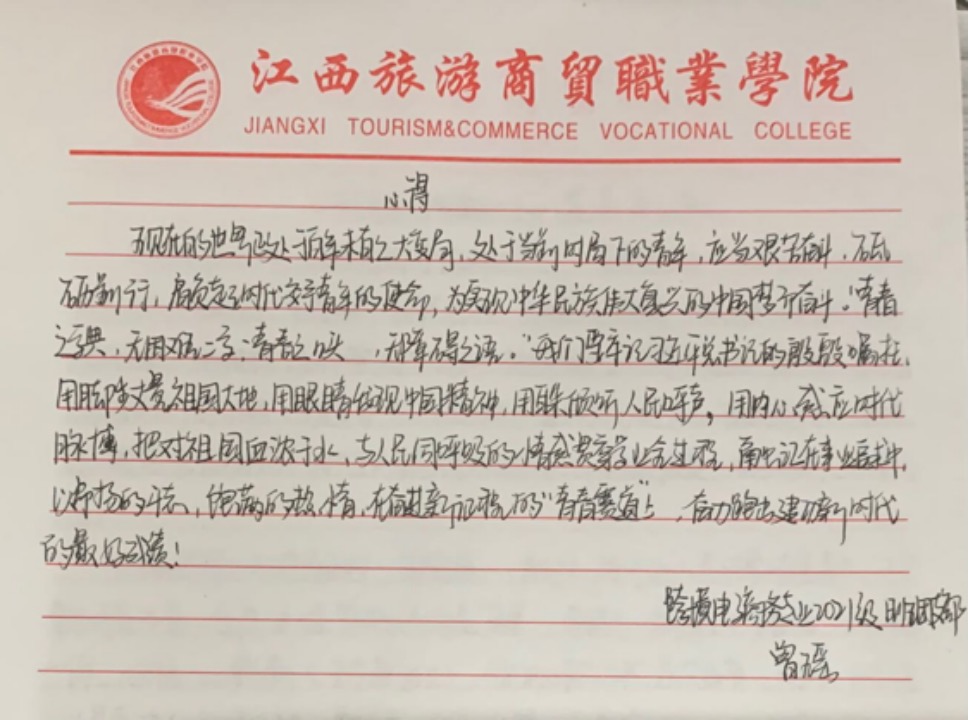 江西旅游商貿職業學院
JIANGXI TOURISM&COMMERCE VOCATIONAL COLLEGE
心得
现在的世界正处于百年未有之大变局，处于当前时局下的青年，应当艰苦奋斗，砥
砺前行，肩负起时代交予青年的使命，为实现中华民族伟大复兴的中国梦而奋斗。“青春
之字典，无困难之字；青春之口头，无障碍之语。”我们要牢记习近平总书记的殷殷嘱托，
用脚步丈量祖国大地，用眼睛发现中国精神，用耳朵倾听人民呼声，用内心感应时代
脉搏，把对祖国血浓于水、与人民同呼吸的情感贯穿学业全过程，融汇在事业追求中，
以昂扬的斗志、饱满的热情，在奋进新征程的“青春赛道”上，奋力跑出建功新时代
的最好成绩！
跨境电商专业2021级
曾瑶